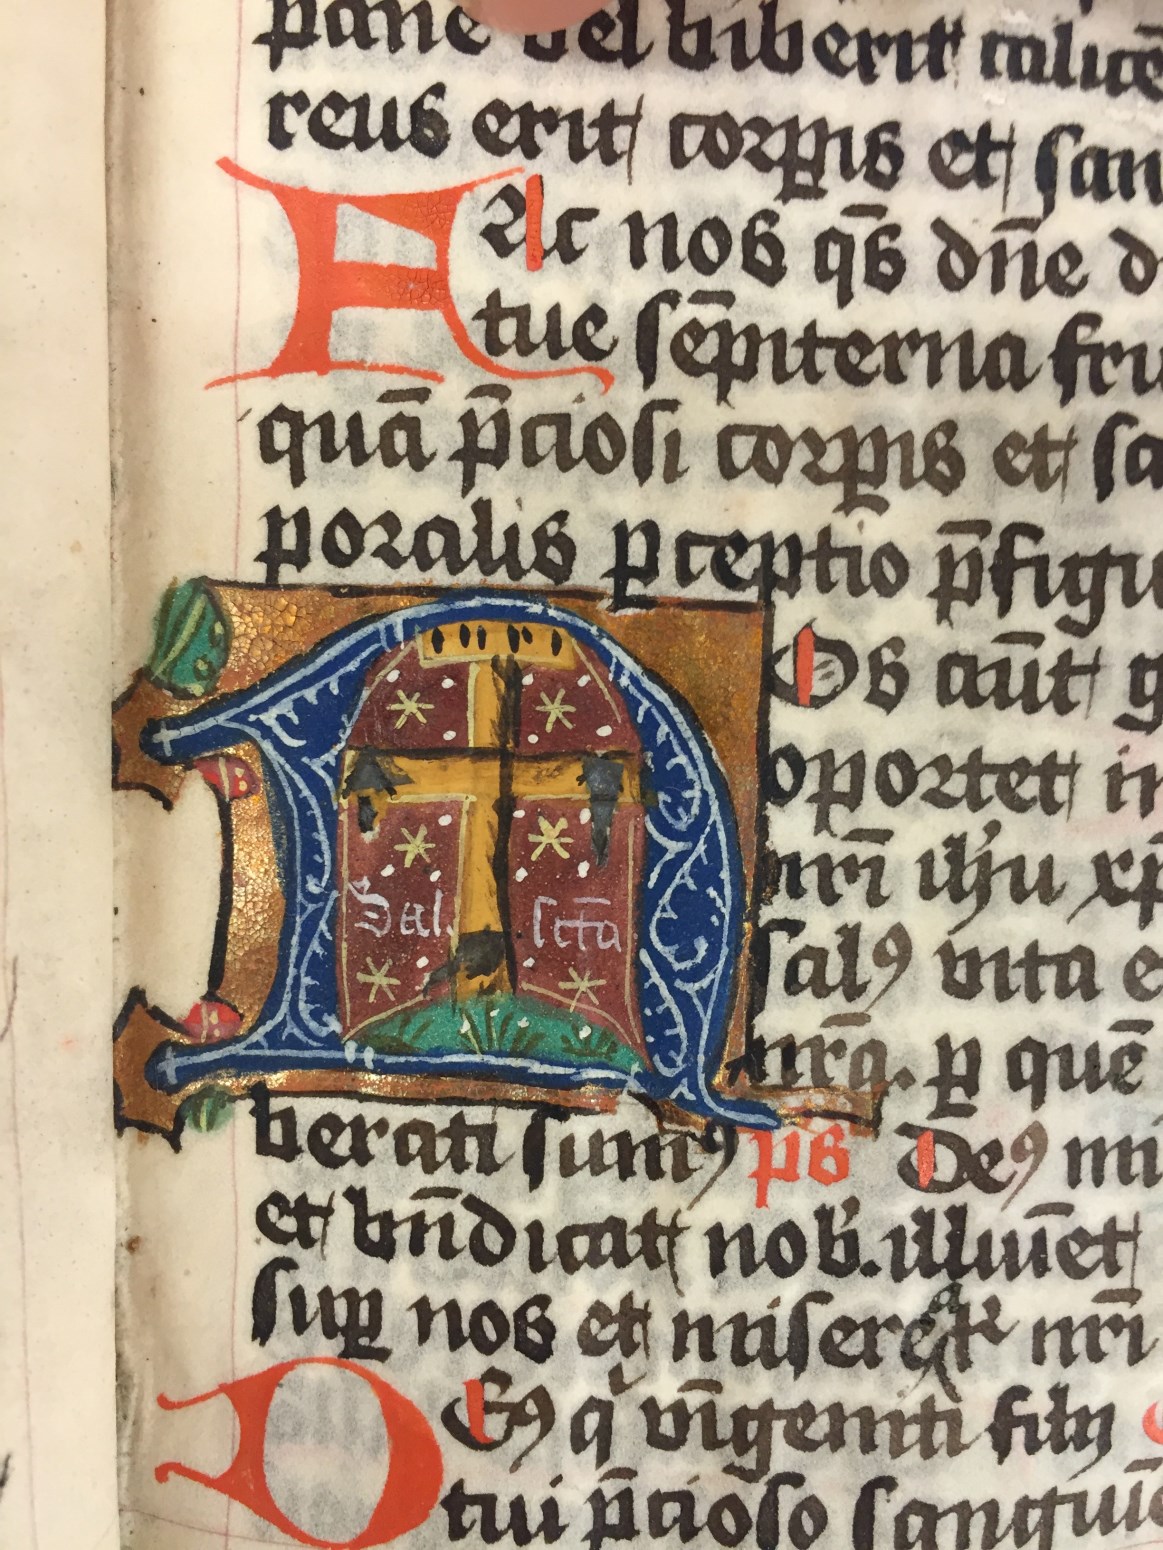 pane vel biberit calicē
reus erit corꝑis et san
Fac nos qs̄ dn̄e di
tue sēpiterna fru
quā p̄ciosi corꝑis et sa
poralis ꝑceptio p̄figu
Nos aūt g
oportet in
nr̄i ihu xp̄
salꝰ vita e
nr̄a. ꝑ quē
Sal. sctā
berati sumꝰ ps Deꝰ mi
et bn̄dicat nob. illuīet
suꝑ nos et misereat nr̄i
Deꝰ q vnīgeniti filij
tui p̄cioso sanguīe